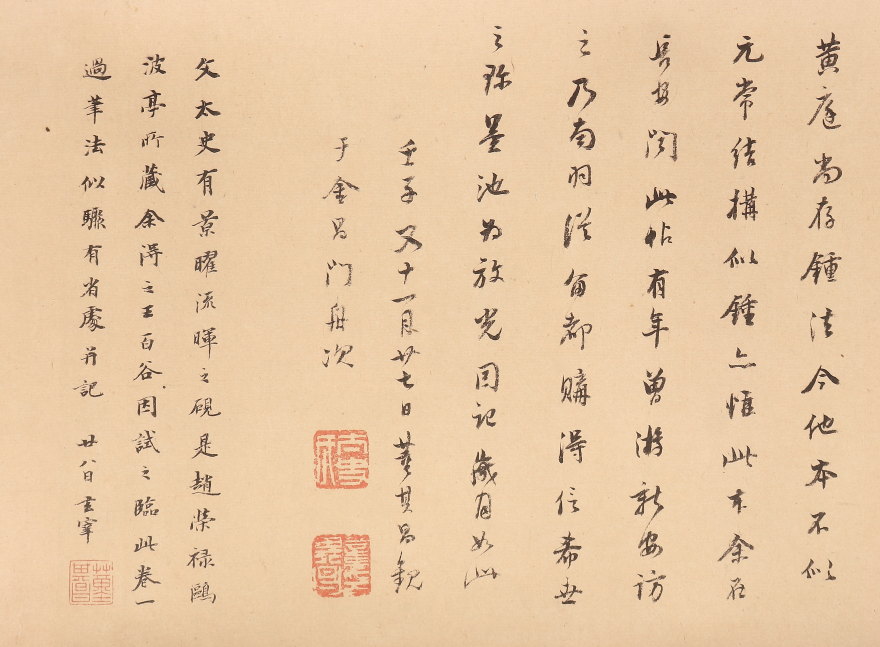 黃庭尚存鍾法今他本不似
元常結構似鍾者惟此本余在
長安聞此帖有年曾游新安訪
之乃南羽從留都購得信希世
之珎墨池為放光因記歲月如此
壬子又十一月廿七日董其昌觀
于金昌門舟次
文太史有景曜流暉之硯是趙榮祿鷗
波亭所藏余得之王百谷因試之臨此卷一
過筆法似驟有省處并記 廿八日玄宰